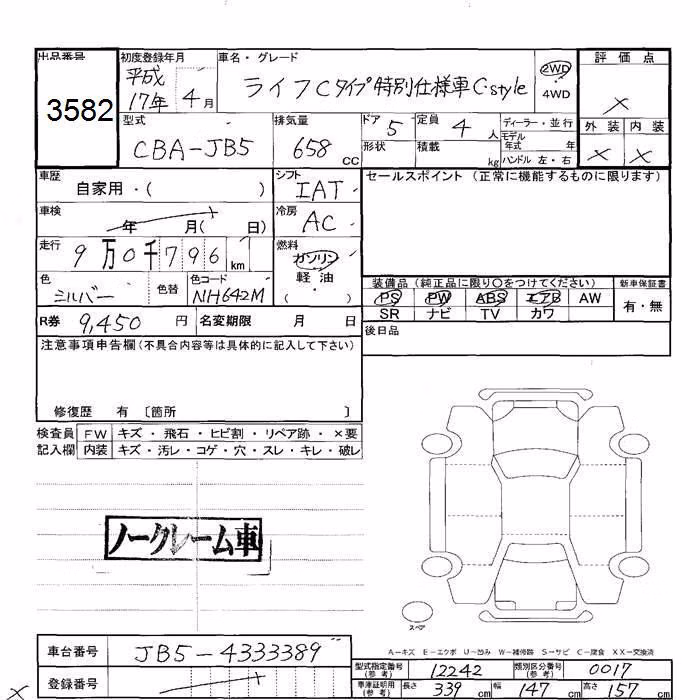 出品番号 初度登録年月 車名・グレード 評価点
3582 平成17年 4月 ライフCタイプ特別仕様車C・style 2WD・4WD ×
型式 排気量 ドア 5 定員 4人 ディーラー・並行 外装 内装
CBA-JB5 658cc 形状 積載 kg モデル年式 年 × ×
ハンドル 左・右
車歴 自家用・( ) シフト IAT セールスポイント(正常に機能するものに限ります)
車検 年 月( 日) 冷房 AC
走行 9万0千796km 燃料 ガソリン・軽油・( )
色 シルバー 色替 色コード NH642M 装備品(純正品に限り○をつけてください) 新車保証書
PS PW ABS エアB AW 有・無
SR ナビ TV カワ
R券 9,450円 名変期限 月 日 後日品
注意事項申告欄(不具合内容等は具体的に記入して下さい)
修復歴 有 〔箇所 〕
検査員 FW キズ・飛石・ヒビ割・リペア跡・×要
記入欄 内装 キズ・汚レ・コゲ・穴・スレ・キレ・破レ
ノークレーム車
スペア
A−キズ E−エクボ U−凹み W−補修跡 S−サビ C−腐食 XX−交換済
車台番号 JB5-4333389 型式指定番号(参考) 12242 類別区分番号(参考) 0017
登録番号 車庫証明用(参考) 長さ 339cm 幅 147cm 高さ 157cm
×